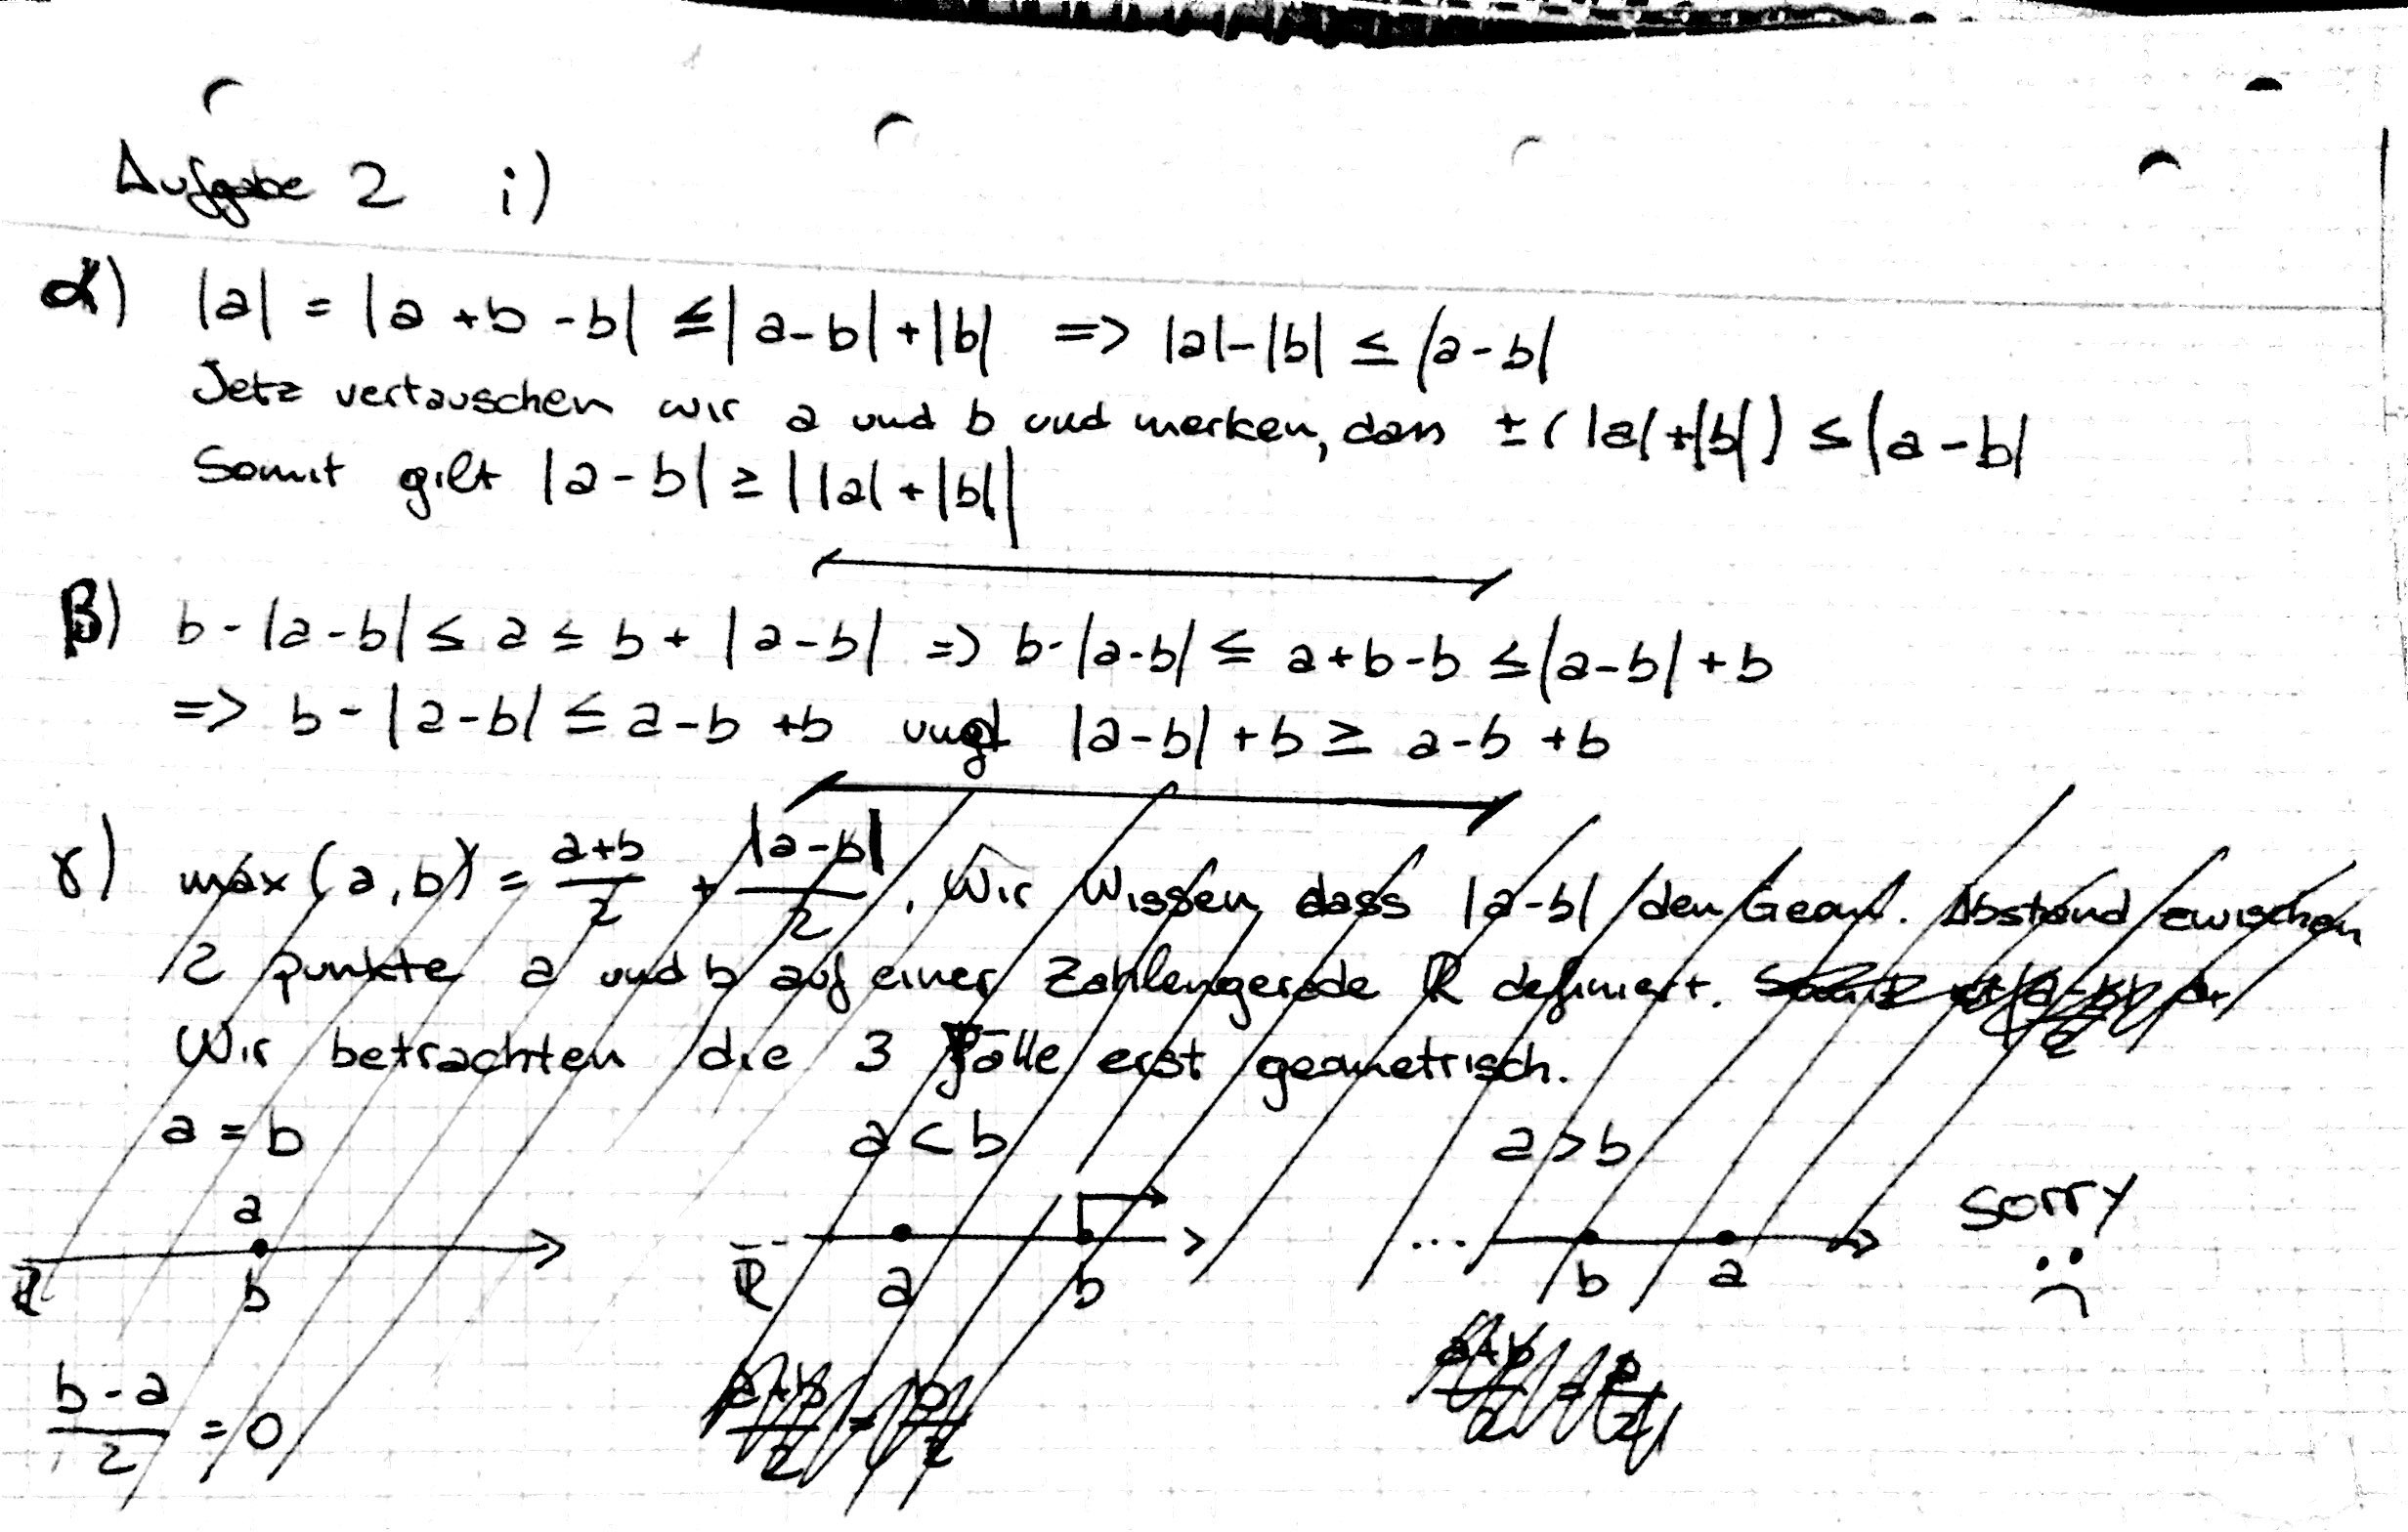 Aufgabe 2 i)
α) |a| = |a + b - b| ≤ |a-b| + |b| => |a|-|b| ≤ |a-b|
Jetz vertauschen wir a und b und merken, dass ±(|a|+|b|) ≤ |a-b|
Somit gilt |a-b| ≥ ||a|+|b||
β) b - |a-b| ≤ a ≤ b + |a-b| => b-|a-b| ≤ a+b-b ≤ |a-b| + b
=> b - |a-b| ≤ a-b +b und |a-b| + b ≥ a-b +b
γ) max(a,b) = (a+b)/2 + |a-b|/2 , Wir Wissen, dass |a-b| den Geom. Abstand zwischen
2 punkte a und b auf einer Zahlengerade ℝ definiert.
Wir betrachten die 3 Fälle erst geometrisch.
a = b a < b a > b
a
sorry
ℝ b ℝ a b ... b a
(b-a)/2 = 0